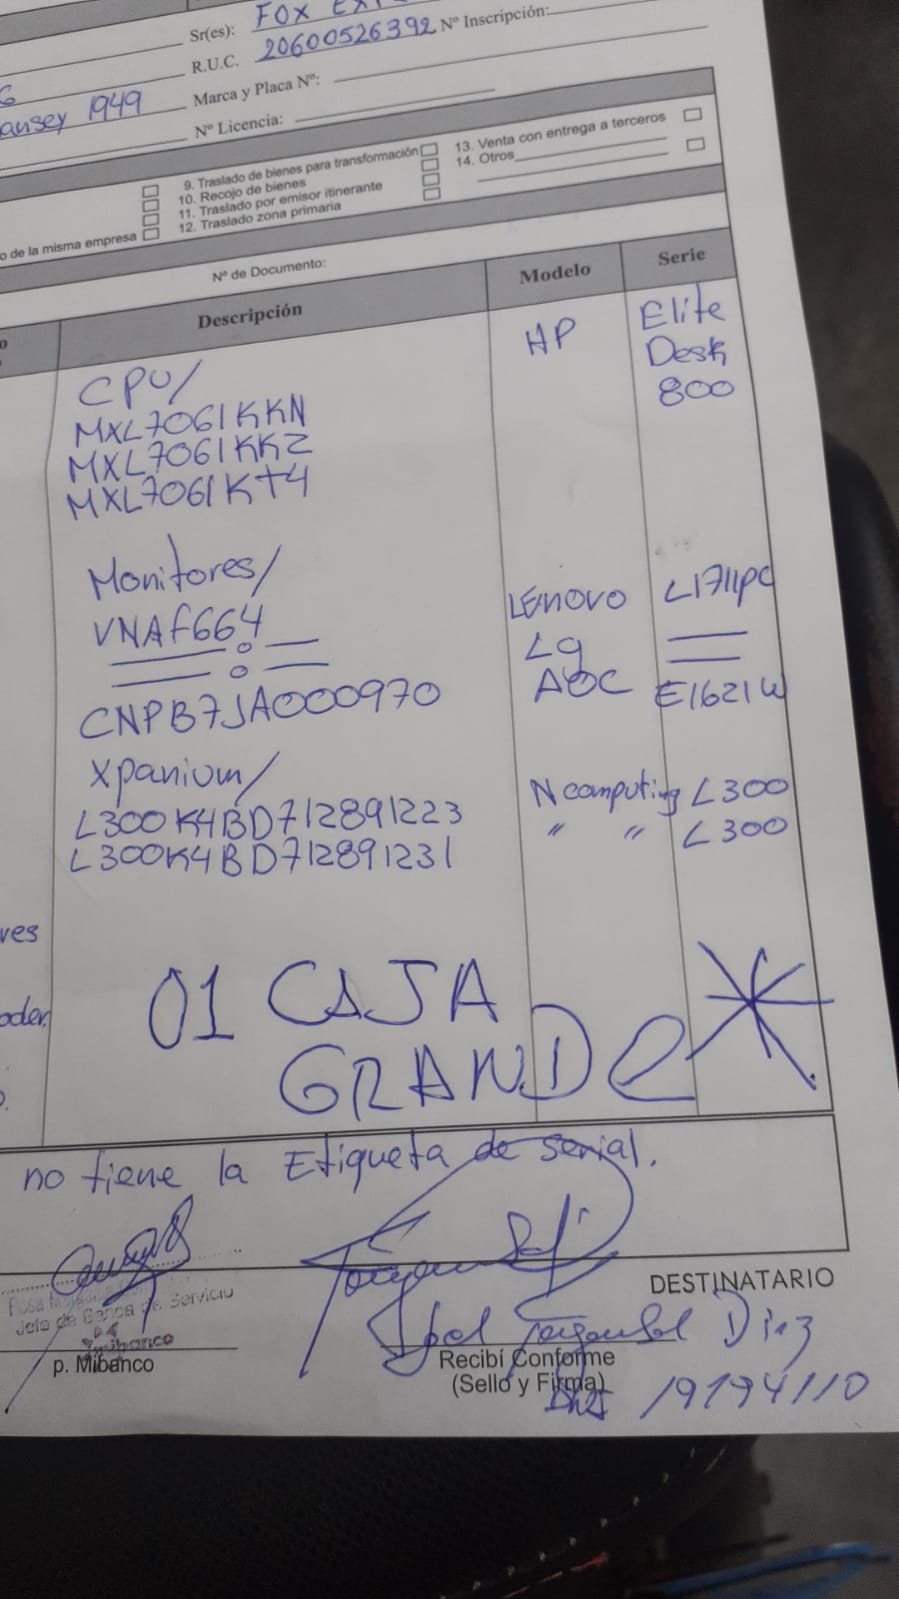 Sr(es): FOX
R.U.C. 20600526392 Nº Inscripción:
ansey 1949 Marca y Placa Nº:
Nº Licencia:
9. Traslado de bienes para transformación
10. Recojo de bienes
11. Traslado por emisor itinerante
12. Traslado zona primaria
13. Venta con entrega a terceros
14. Otros
o de la misma empresa
Nº de Documento:
Descripción Modelo Serie
CPU/ HP Elite
Desk
800
MXL7061KKN
MXL7061KKZ
MXL7061KT4
Monitores/
VNAF664 LENOVO L1711pC
Lg
CNPB7JA000970 AOC E1621W
Xpanium/
L300K4BD712891223 Ncomputing L300
L300K4BD712891231 " " L300
ves
oder.
01 CAJA
GRANDe
no tiene la Etiqueta de serial.
DESTINATARIO
Jefe de Banca de Servicio
mibanco
p. Mibanco
Diaz
Recibí Conforme
(Sello y Firma)
19194110